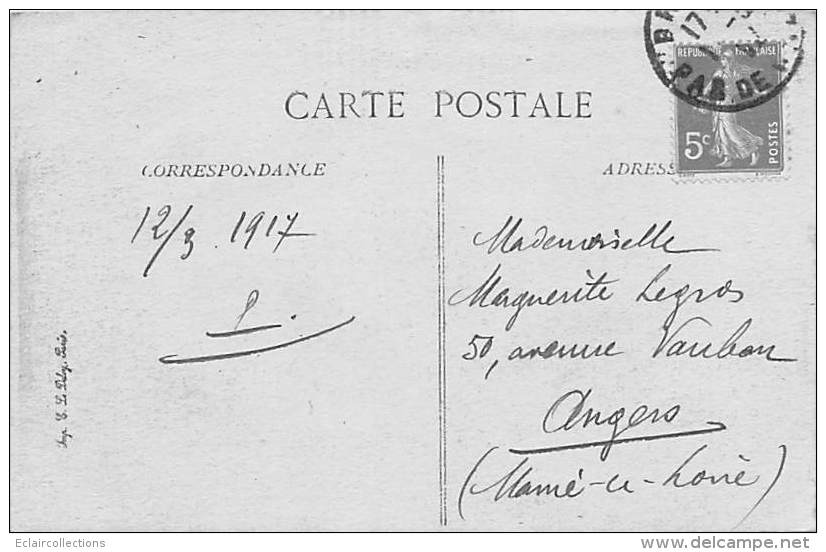 CARTE POSTALE
CORRESPONDANCE
12/3 1917
P.
Imp. E. Le Deley, Paris.
17
PAS DE
REPUBLIQUE FRANÇAISE
5c
POSTES
ADRESS
Mademoiselle
Marguerite Legros
50, avenue Vauban
Angers
(Maine-et-Loire)
Eclaircollections
www.delcampe.net